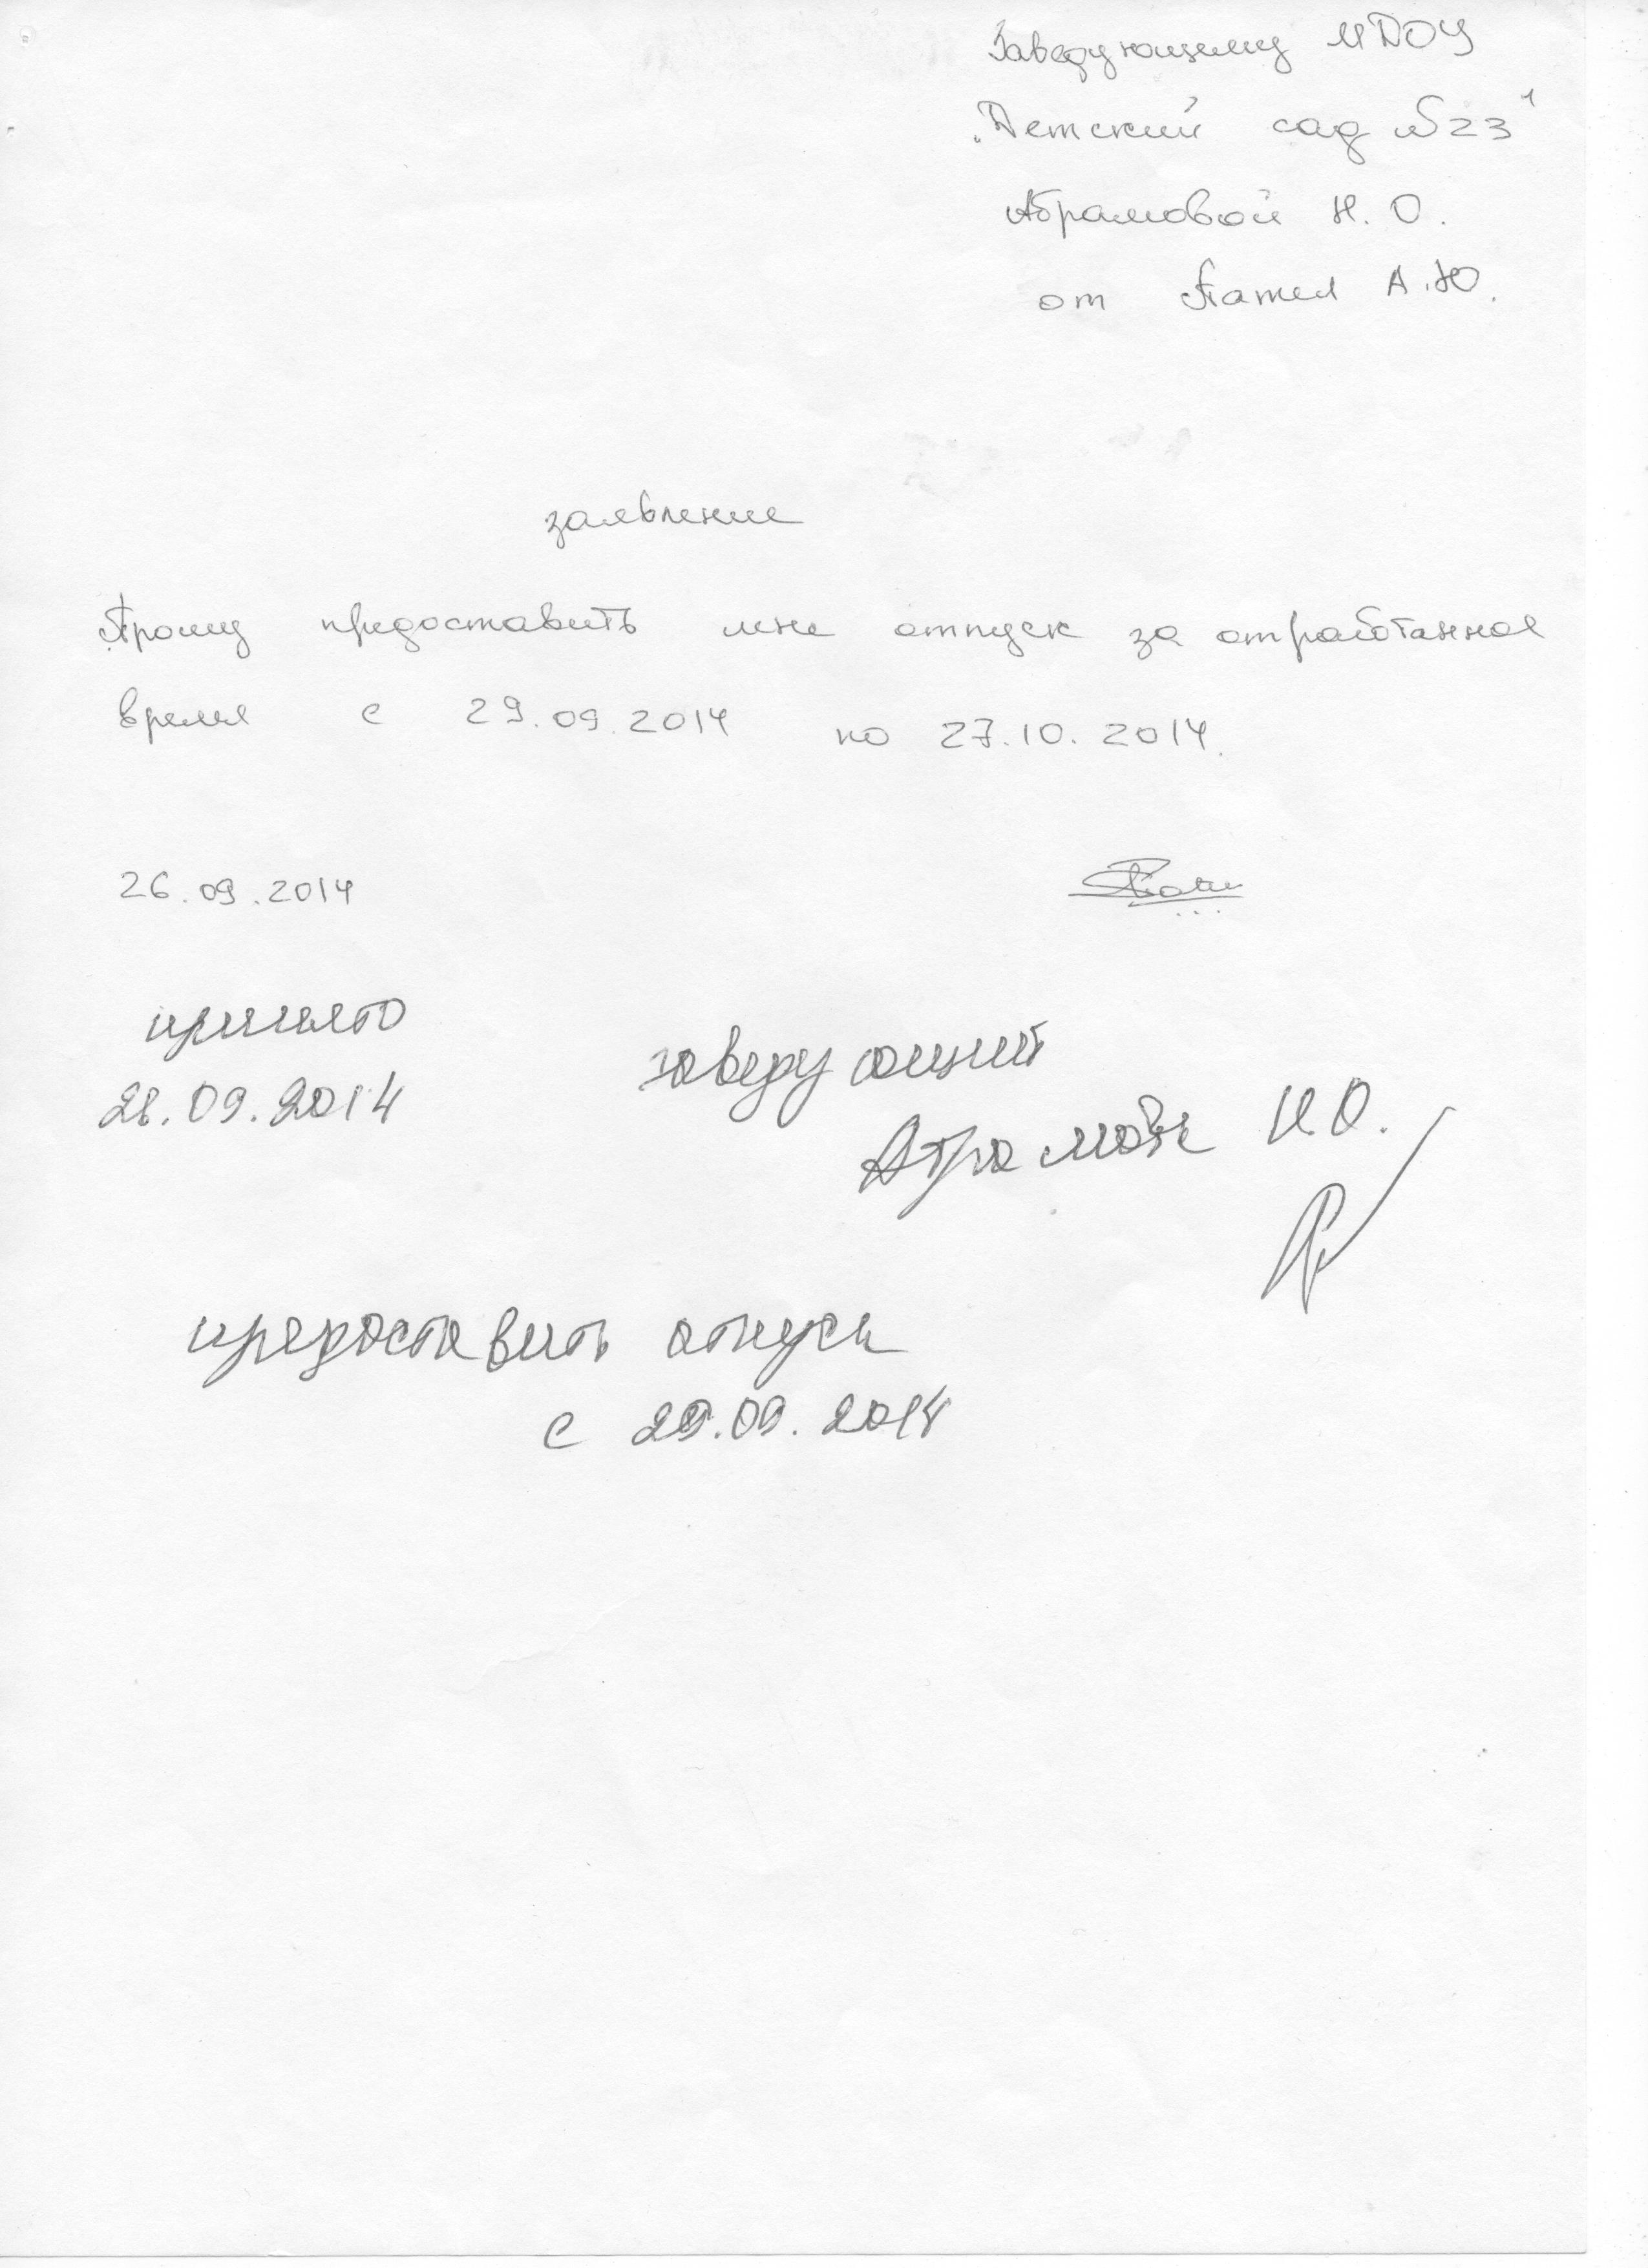 Заведующему МДОУ
"Детский сад №23"
Абрамовой Н. О.
от Пател А.Ю.
заявление
Прошу предоставить мне отпуск за отработанное
время с 29.09.2014 по 27.10.2014.
26.09.2014
принято
26.09.2014
заведующий
Абрамова Н.О.
предоставить отпуск
с 29.09.2014